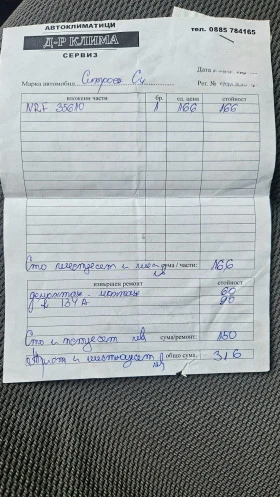 АВТОКЛИМАТИЦИ
Д-Р КЛИМА
СЕРВИЗ
тел. 0885 784165
Дата
Марка автомобил Ситроен С4 Рег. №
вложени части бр. ед. цена стойност
NRF 35610 1 166 166
Сто шестдесет и шест лв сума / части: 166
извършен ремонт стойност
демонтаж - монтаж 60
R 134A 90
Сто и петдесет лв сума/ремонт: 150
Триста и шестнадесет лв общо сума: 316